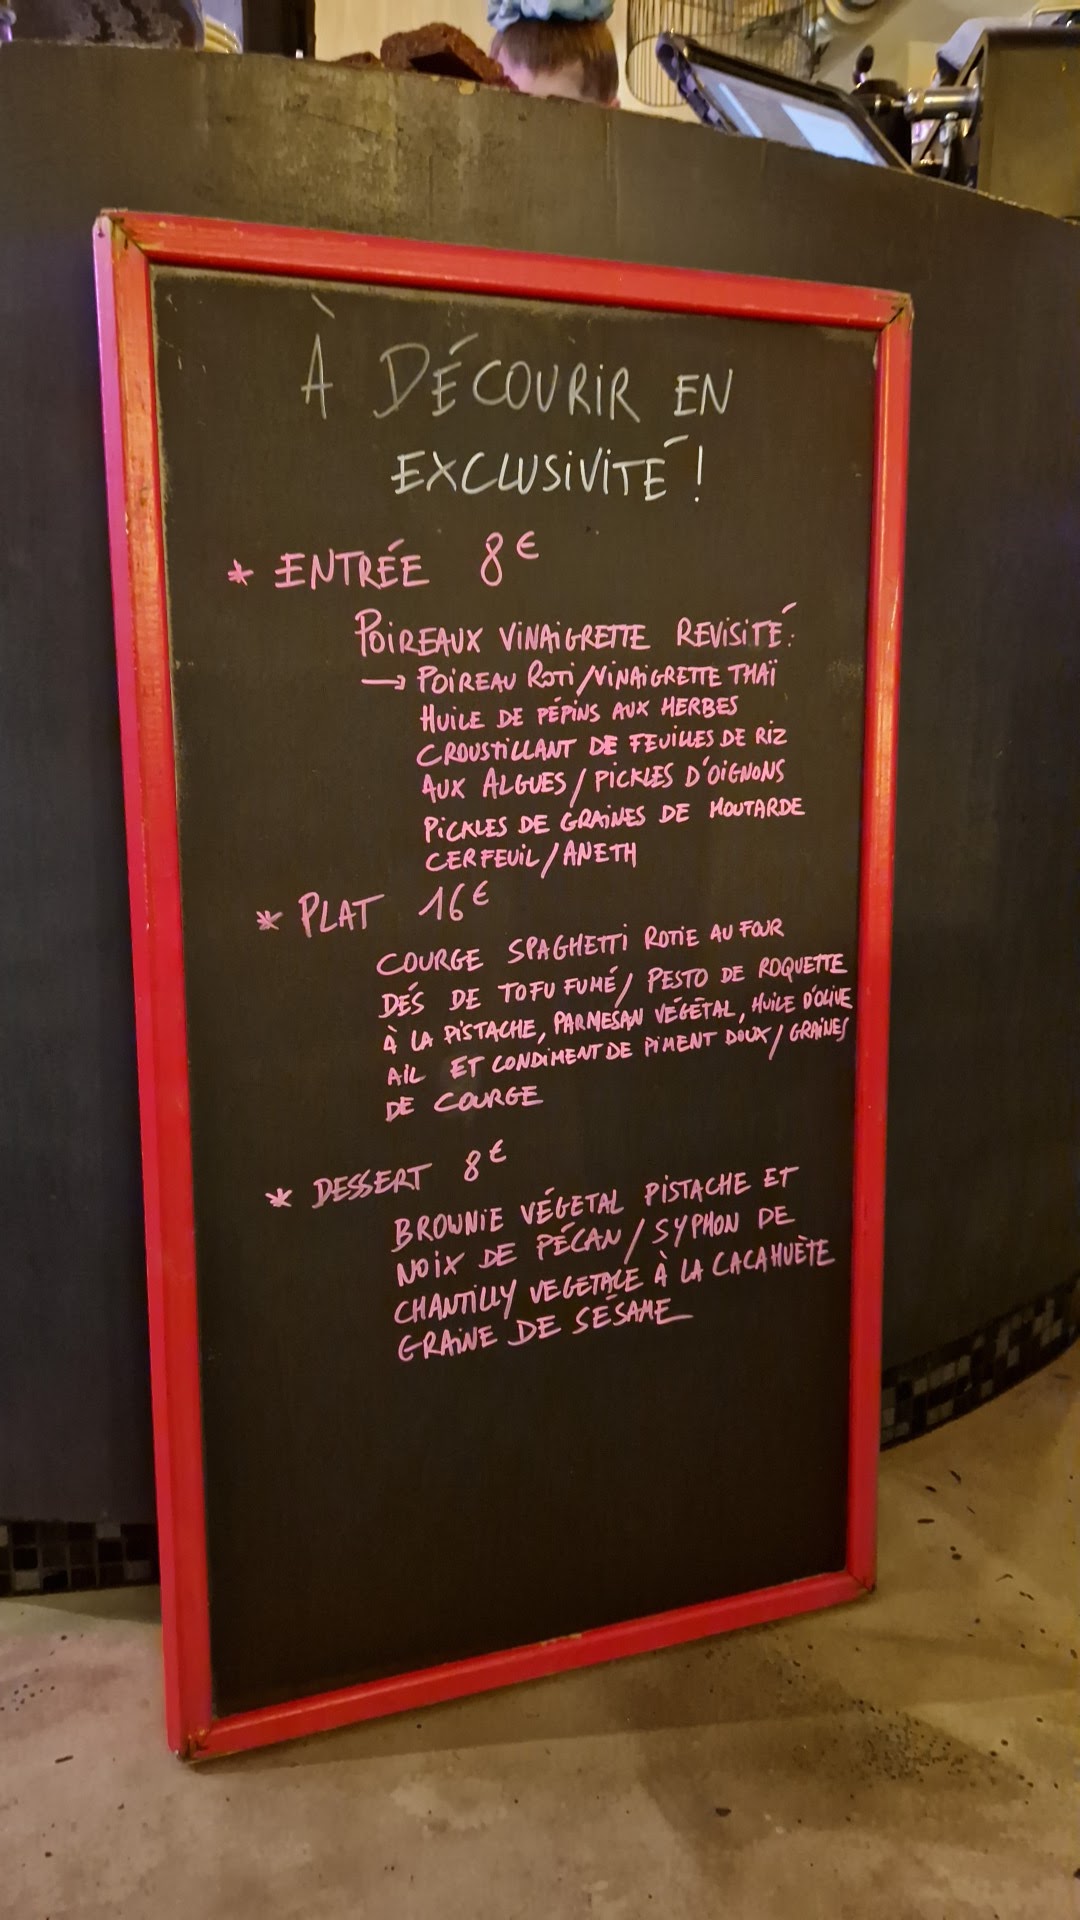 À DÉCOURIR EN
EXCLUSIVITÉ !
* ENTRÉE 8€
POIREAUX VINAIGRETTE REVISITÉ:
→ POIREAU ROTI/VINAIGRETTE THAÏ
HUILE DE PÉPINS AUX HERBES
CROUSTILLANT DE FEUILLES DE RIZ
AUX ALGUES/PICKLES D'OIGNONS
PICKLES DE GRAINES DE MOUTARDE
CERFEUIL/ANETH
* PLAT 16€
COURGE SPAGHETTI ROTIE AU FOUR
DÉS DE TOFU FUMÉ/ PESTO DE ROQUETTE
À LA PISTACHE, PARMESAN VÉGÉTAL, HUILE D'OLIVE
AIL ET CONDIMENT DE PIMENT DOUX/GRAINES
DE COURGE
* DESSERT 8€
BROWNIE VÉGETAL PISTACHE ET
NOIX DE PÉCAN/SYPHON DE
CHANTILLY VEGETALE À LA CACAHUÈTE
GRAINE DE SÉSAME